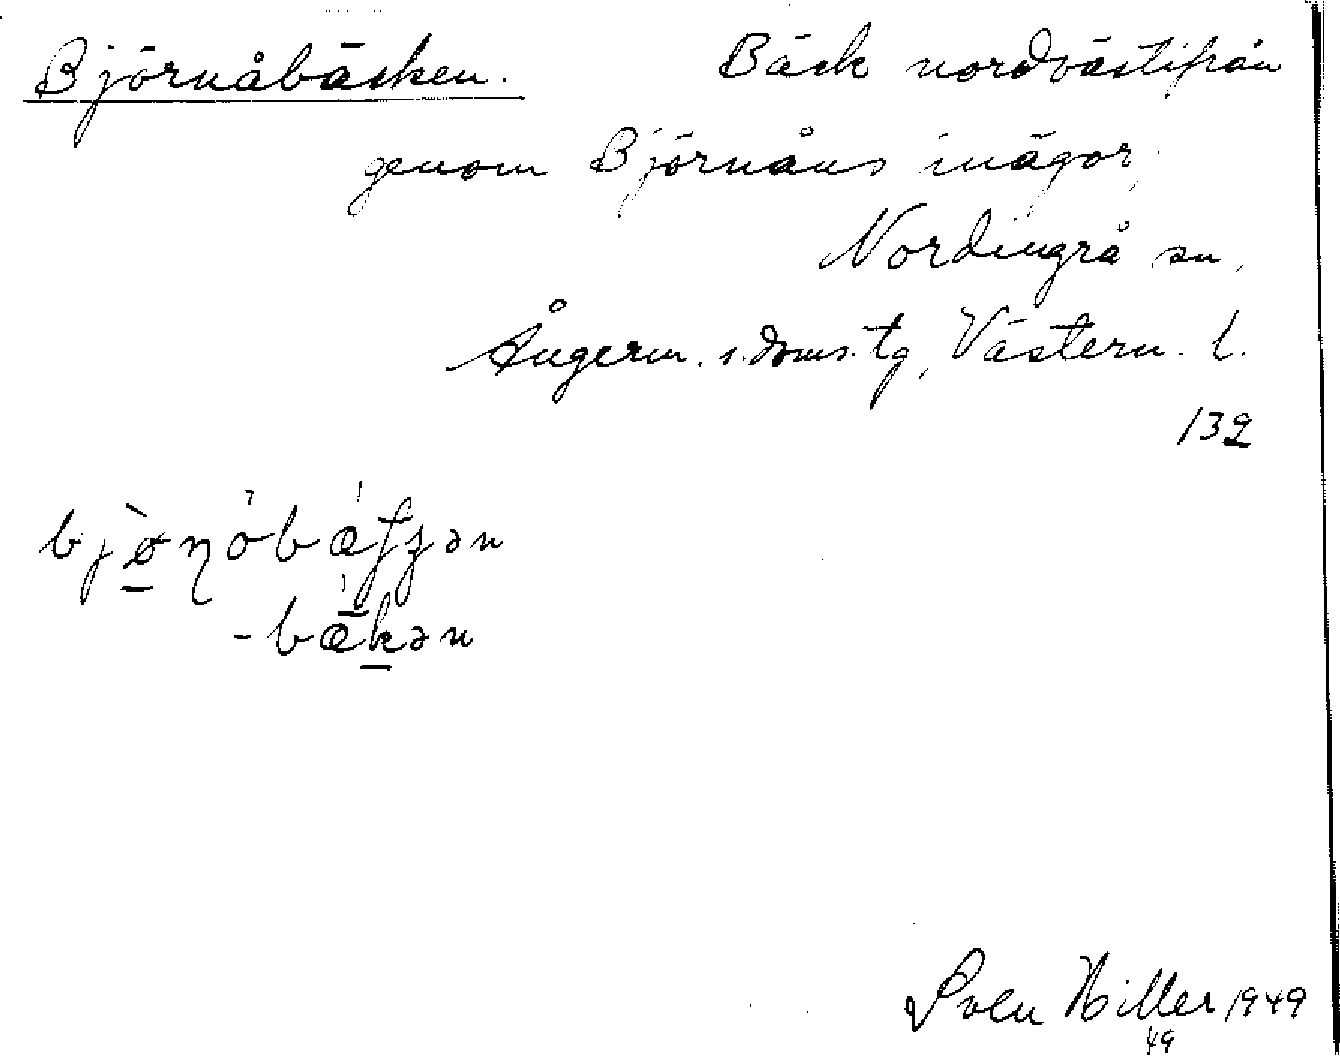 Björnåbäcken. Bäck nordvästifrån
genom Björnåns inägor,
Nordingrå sn,
Ångerm. s. doms. tg, Västern. l.
132
bjø̠̀ŋȯbǽʃʒən
-bǽk̠ən
Sven Hiller 1949
49